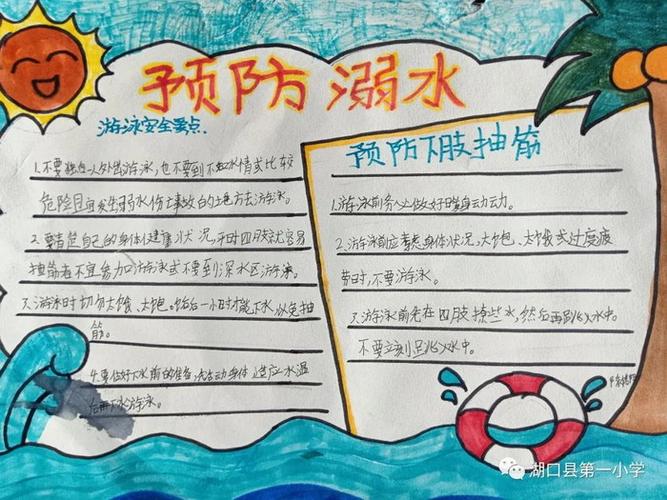 预防溺水
游泳安全要点.
1.不要独自一人外出游泳,也不要到不知水情或比较
危险且宜发生溺水伤亡事故的地方去游泳。
2.要清楚自己的身体健康状况,平时四肢就容易
抽筋者不宜参加游泳或不要到深水区游泳。
3.游泳时切勿太饿、太饱。饭后一小时才能下水,以免抽
筋。
4.要做好下水前的准备,先活动身体,适应水温
后再下水游泳。
预防下肢抽筋
1.游泳前务必做好暖身运动。
2.游泳前应考虑身体状况,太饱、太饿或过度疲
劳时,不要游泳。
3.游泳前先在四肢撩些水,然后再跳入水中。
不要立刻跳入水中。
湖口县第一小学